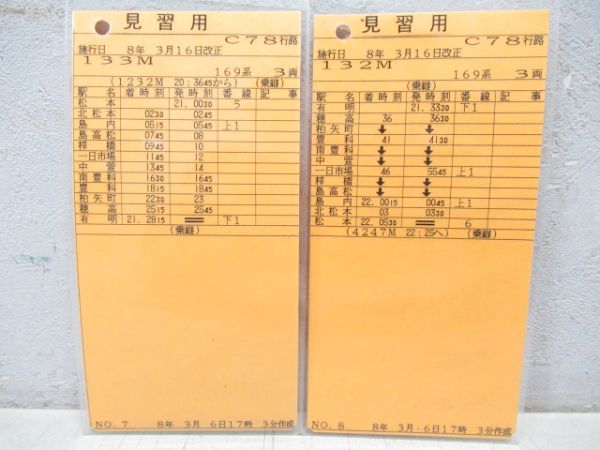 見習用
C78行路
施行日 8年 3月16日改正
133M
169系 3両
(1232M 20:3645から) (乗継)
駅名 着時刻 発時刻 番線 記事
松本 21.0030 5
北松本 0230 0245
島内 0515 0545 上1
島高松 0745 08
梓橋 0945 10
一日市場 1145 12
中萱 1345 14
南豊科 1630 1645
豊科 1815 1845
柏矢町 2230 23
穂高 2515 2545
有明 21.2815 下1
(乗継)
NO.7 8年 3月 6日17時 3分作成
見習用
C78行路
施行日 8年 3月16日改正
132M
169系 3両
(乗継)
駅名 着時刻 発時刻 番線 記事
有明 21.3330 下1
穂高 36 3630
柏矢町 ↓ ↓
豊科 41 4130
南豊科 ↓ ↓
中萱 ↓ ↓
一日市場 46 5545 上1
梓橋 ↓ ↓
島高松 ↓ ↓
島内 22.0015 0045 上1
北松本 03 0330
松本 22.0530 6
(4247M 22:25へ) (乗継)
NO.8 8年 3月 6日17時 3分作成